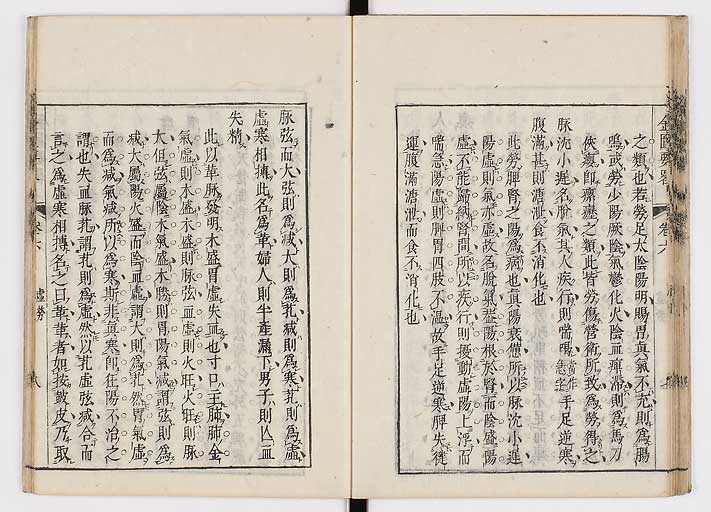 之類也若勞足太陰陽明腸胃真氣不充則為腸
鳴或勞少陽厥陰氣鬱化火陰血痺滯則為馬刀
俠癭即瘰癧之類此皆勞傷營衛所致為勞得之
脉沈小遲名脫氣其人疾行則喘喝手足逆寒
腹滿甚則溏泄食不消化也
此勞脾腎之陽為病也真陽衰憊所以脉沈小遲
陽虛則氣亦虛故名脫氣蓋陽根於腎而陰盛陽
虛不能歸納腎間所以疾行則擾動虛陽上浮而
喘急陽虛則脾胃四肢不溫故手足逆寒脾失健
運腹滿溏泄而食不消化也
金匱要畧
卷六
脉弦而大弦則為減大則為芤減則為寒芤則為虛
虛寒相搏此名為革婦人則半產漏下男子則亡血
失精
此以革脉發明木盛胃虛失血也寸口主肺肺金
氣虛則木盛木盛則脉弦血虛則火旺火旺則脉
大但弦屬陰木氣盛木勝則胃陽氣減謂弦則為
減大屬陽火盛而陰血虛謂大則為芤然胃氣虛
而為減氣減所以為寒斯非真寒即在陽不治之
謂也失血脉芤謂芤則為虛然以芤虛弦減合而
言之為虛寒相搏名之曰革革者如按鼓皮乃取
卷六
虛勞
八